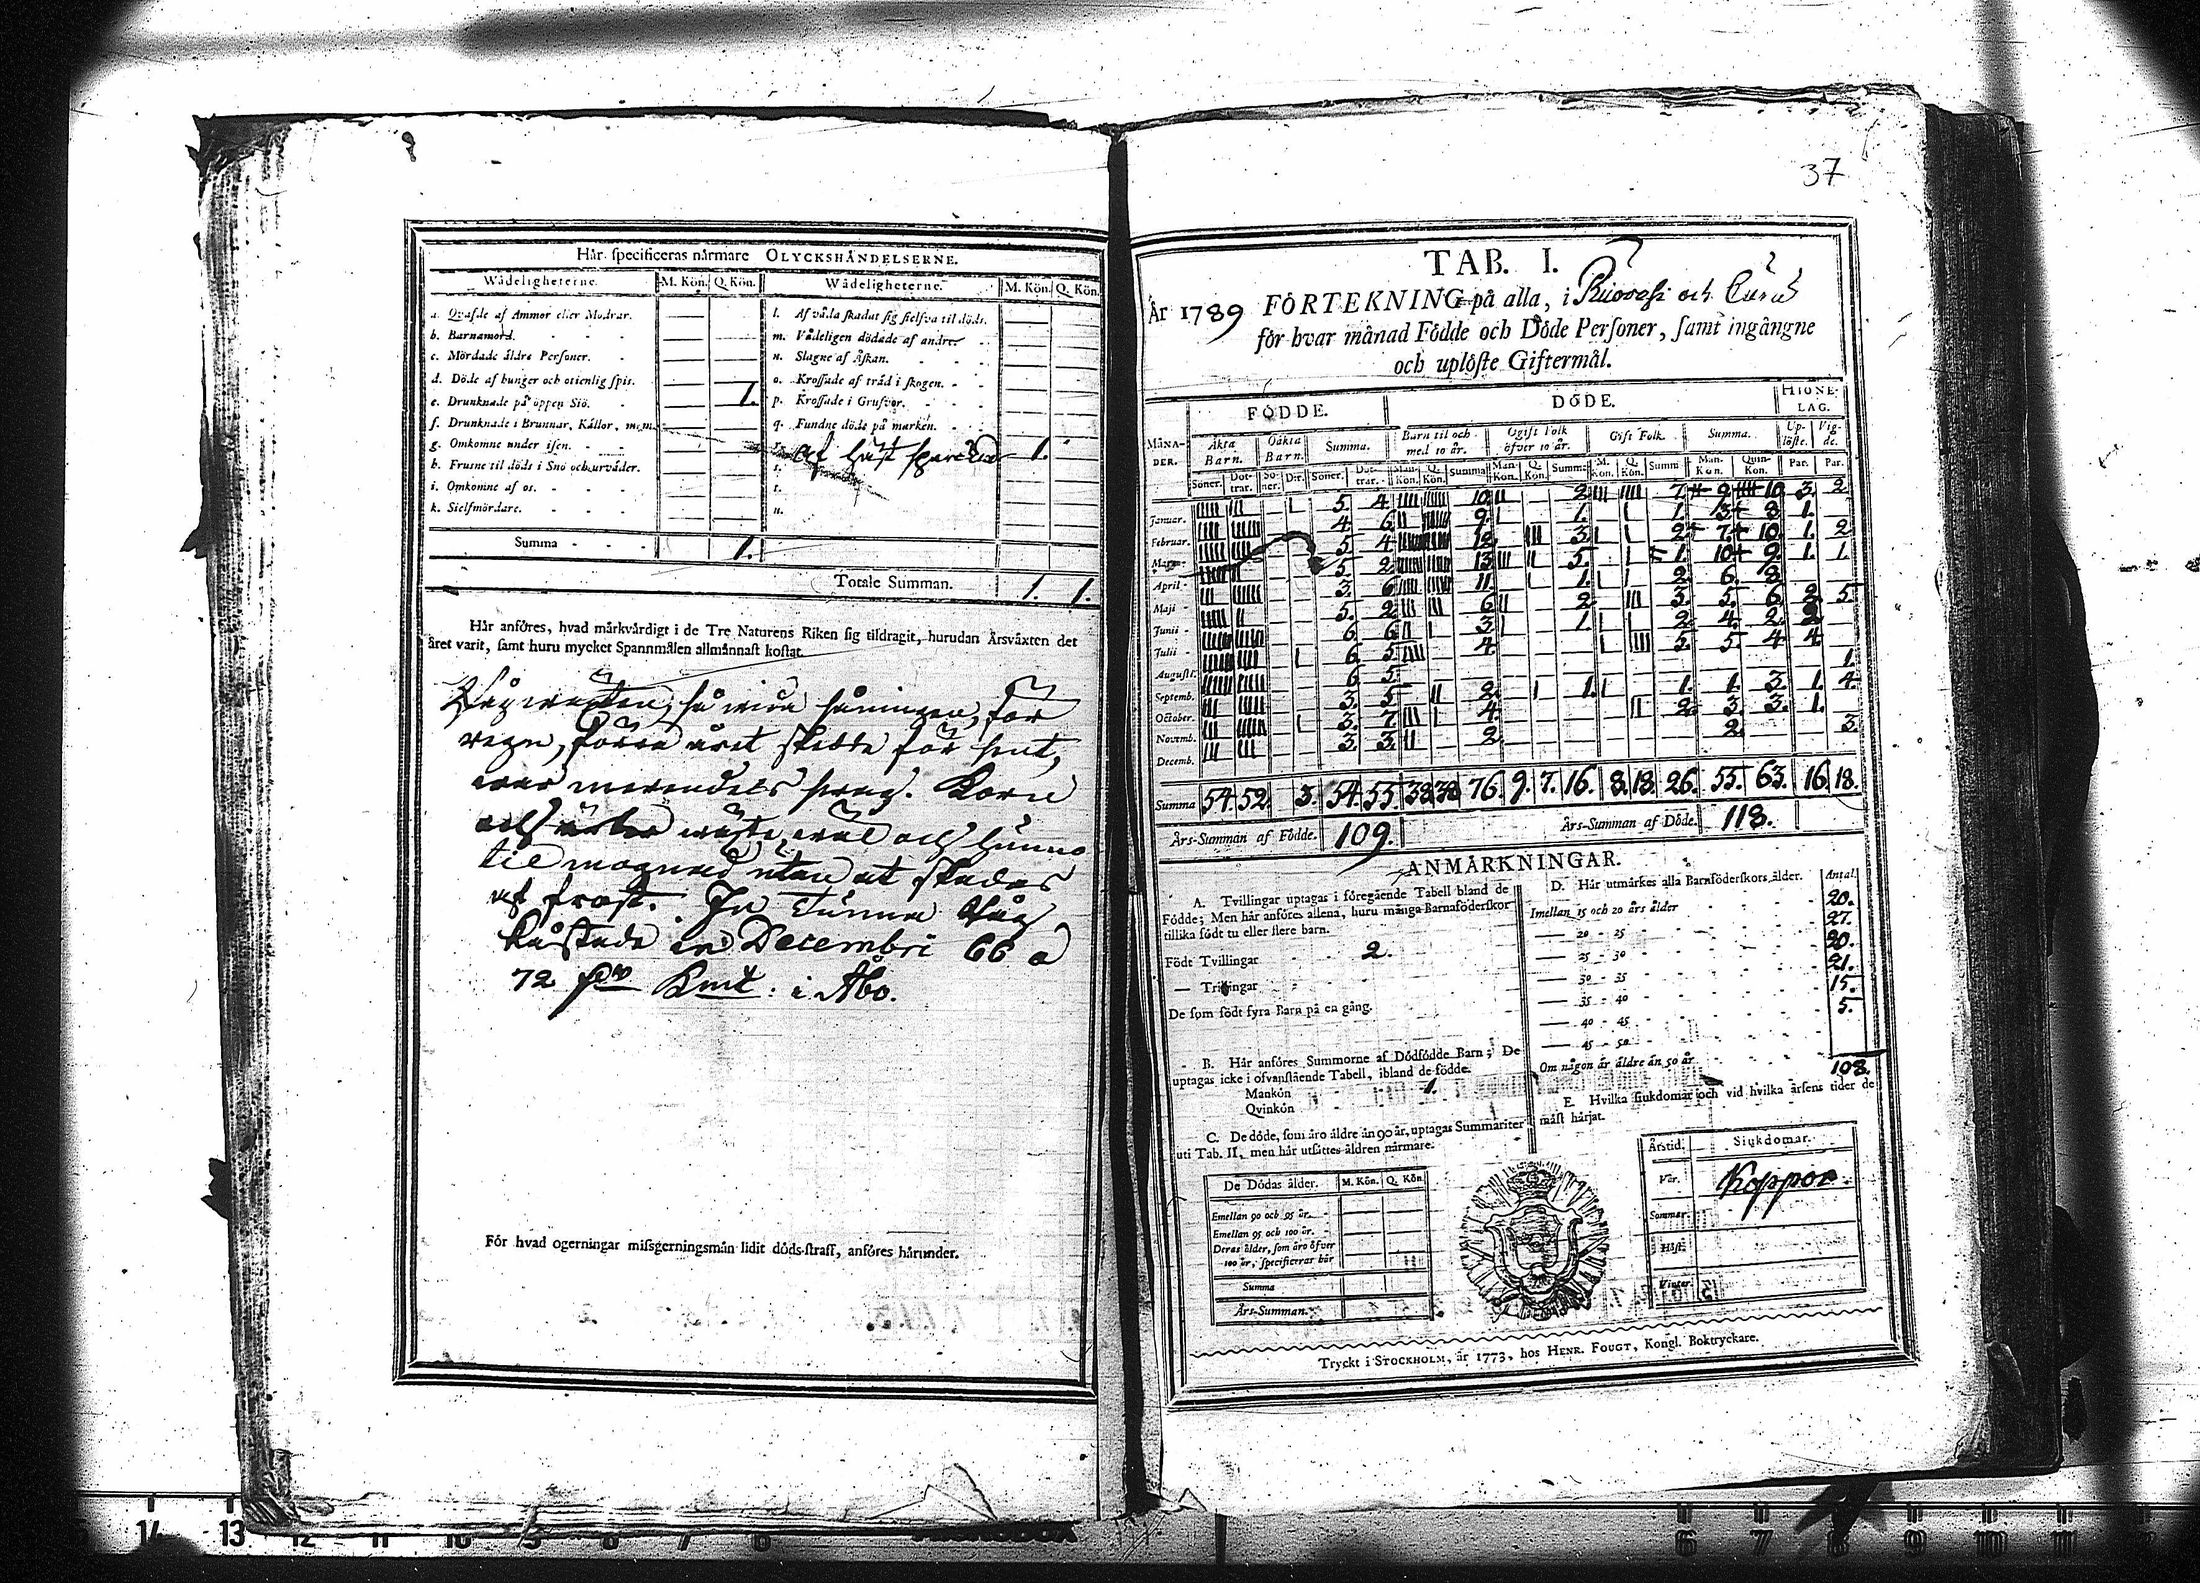 Här specificeras närmare OLYCKSHÄNDELSERNE.
Wådeligheterne. M. Kön. Q. Kön. Wådeligheterne. M. Kön. Q. Kön.
a. Qvafde af Ammor eller Modrar. — — l. Af våda skadat sig sielfva til döds. — —
b. Barnamord. — — m. Vådeligen dödade af andre. — —
c. Mördade äldre Personer. — — n. Slagne af Åskan. — —
d. Döde af hunger och otienlig spis. — — o. Krossade af träd i skogen. — —
e. Drunknade på öppen Siö. — 1. p. Krossade i Grufvor. — —
f. Drunknade i Brunnar, Källor, m.m. — — q. Fundne döde på marken. — —
g. Omkomne under isen. — — r. af häst 1.
h. Frusne til döds i Snö och urväder. — — s.
i. Omkomne af os. — — t.
k. Sielfmördare. — — u.
Summa 1.
Totale Summan. 1. 1.
Här anföres, hvad märkvärdigt i de Tre Naturens Riken sig tildragit, hurudan Årsväxten det
året varit, samt huru mycket Spannmålen allmännast kostat.
Rågwexten, så wida såningen, för
regn, förra året skedde för sent,
war merendels swag. Korn
och wäxte wäl och hunno
til mognad utan at skadas
af frost. En Tunna Råg
kåstade in Decembri 66 a
72 Kmt: i Åbo.
För hvad ogerningar missgerningsmän lidit döds-straff, anföres härunder.
37
TAB. I.
År 1789 FÖRTEKNING på alla, i Ruovesi och Curu
för hvar månad Födde och Döde Personer, samt ingångne
och uplöste Giftermål.
FÖDDE. DÖDE. HIONELAG.
MÅNADER. Äkta Barn. Oäkta Barn. Summa. Barn til och med 10 år. Ogift Folk öfver 10 år. Gift Folk. Summa. Uplöste. Vigde.
Söner. Dottrar. Söner. D:r. Söner. Dottrar. Man-Kön. Q. Kön. Summa Man-Kön. Q. Kön. Summa M. Kön. Q. Kön. Summ Man-Kön. Quin-Kön. Par. Par.
Januar. 5. 4. 10. 2. 7. 9. 10. 3. 2.
Februar. 4. 6. 9. 1. 1. 3. 8. 1.
Mars 5. 4. 12. 3. 2. 7. 10. 1. 2.
April 5. 2. 13. 5. 1. 10. 9. 1. 1.
Maji 3. 6. 11. 1. 2. 6. 8.
Junii 5. 2. 6. 2. 3. 5. 6. 2. 5.
Julii 6. 6. 3. 1. 2. 4. 2.
August. 6. 5. 4. 5. 5. 4. 4.
Septemb. 6. 5. 1.
October. 3. 5. 2. 1. 1. 1. 3. 1. 4.
Novemb. 3. 7. 4. 2. 3. 3. 1.
Decemb. 3. 3. 2. 2. 3.
Summa 54. 52. 3. 54. 55. 38. 38. 76. 9. 7. 16. 8. 18. 26. 55. 63. 16. 18.
Års-Summan af Födde. 109. Års-Summan af Döde. 118.
ANMÄRKNINGAR.
A. Tvillingar uptagas i föregående Tabell bland de
Födde; Men här anföres allena, huru många Barnaföderskor
tillika födt tu eller flere barn.
Födt Tvillingar 2.
— Trillingar
De som födt fyra Barn på en gång.
B. Här anföres Summorne af Dödfödde Barn; De
uptagas icke i ofvanstående Tabell, ibland de födde.
Mankön 1.
Qvinkön
C. De döde, som äro äldre än 90 år, uptagas Summariter
uti Tab. II, men här utsättes åldren närmare.
De Dödas ålder. M. Kön. Q. Kön.
Emellan 90 och 95 år.
Emellan 95 och 100 år.
Deras ålder, som äro öfver
100 år, specificerar här
Summa
Års-Summan.
D. Här utmärkes alla Barnföderskors ålder. Antal.
Imellan 15 och 20 års ålder 20.
— 20 - 25 27.
— 25 - 30 20.
— 30 - 35 21.
— 35 - 40 15.
— 40 - 45 5.
— 45 - 50
Om någon är äldre än 50 år
108.
E. Hvilka siukdomar och vid hvilka årsens tider de
mäst härjat.
Årstid. Siukdomar.
Vår. Koppor.
Sommar.
Höst.
Vinter.
Tryckt i STOCKHOLM, år 1773, hos HENR. FOUGT, Kongl. Boktryckare.
14 13 12 11 10 9 8 7 6
6 7 8 9 10 11 12